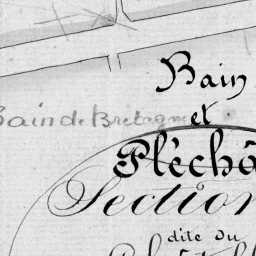 Bain
Bain de Bretagne et
Pléchâ
Section
dite du